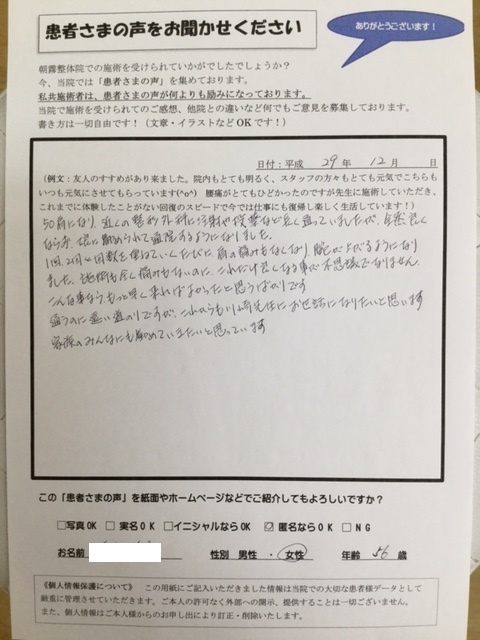 患者さまの声をお聞かせください
ありがとうございます！
朝霧整体院での施術を受けられていかがでしたでしょうか？
今、当院では「患者さまの声」を集めております。
私共施術者は、患者さまの声が何よりも励みになっております。
当院で施術を受けられてのご感想、他院との違いなど何でもご意見を募集しております。
書き方は一切自由です！（文章・イラストなどOKです！）
日付：平成 29 年 12 月 日
（例文：友人のすすめがあり来ました。院内もとても明るく、スタッフの方々もとても元気でこちらも
いつも元気にさせてもらっています(^o^) 腰痛がとてもひどかったのですが先生に施術していただき、
これまでに体験したことがない回復のスピードで今では仕事にも復帰し楽しく生活しています！）
50肩になり、近くの整形外科に注射や投薬など長く通っていましたが、全然良く
ならず、娘に勧められて通院するようになりました。
1回、2回と回数を重ねていくたびに肩の痛みもなくなり、腕が上がるようになり
ました。施術も全く痛みもないのに、これだけ良くなる事が不思議でなりません。
こんな事ならもっと早く来ればよかったと思うばかりです
通うのに遠い道のりですが、これからも川崎先生にお世話になりたいと思います
家族のみんなにも勧めていきたいと思っています
この「患者さまの声」を紙面やホームページなどでご紹介してもよろしいですか？
□写真OK □ 実名OK □イニシャルならOK ☑ 匿名ならOK □ NG
お名前 性別 男性 ・ 女性 年齢 56 歳
《個人情報保護について》 この用紙にご記入いただきました情報は当院での大切な患者様データとして
厳重に管理させていただきます。ご本人の許可なく外部への開示、提供することは一切ございません。
また、個人情報はご本人様からのお申し出により訂正・削除いたします。